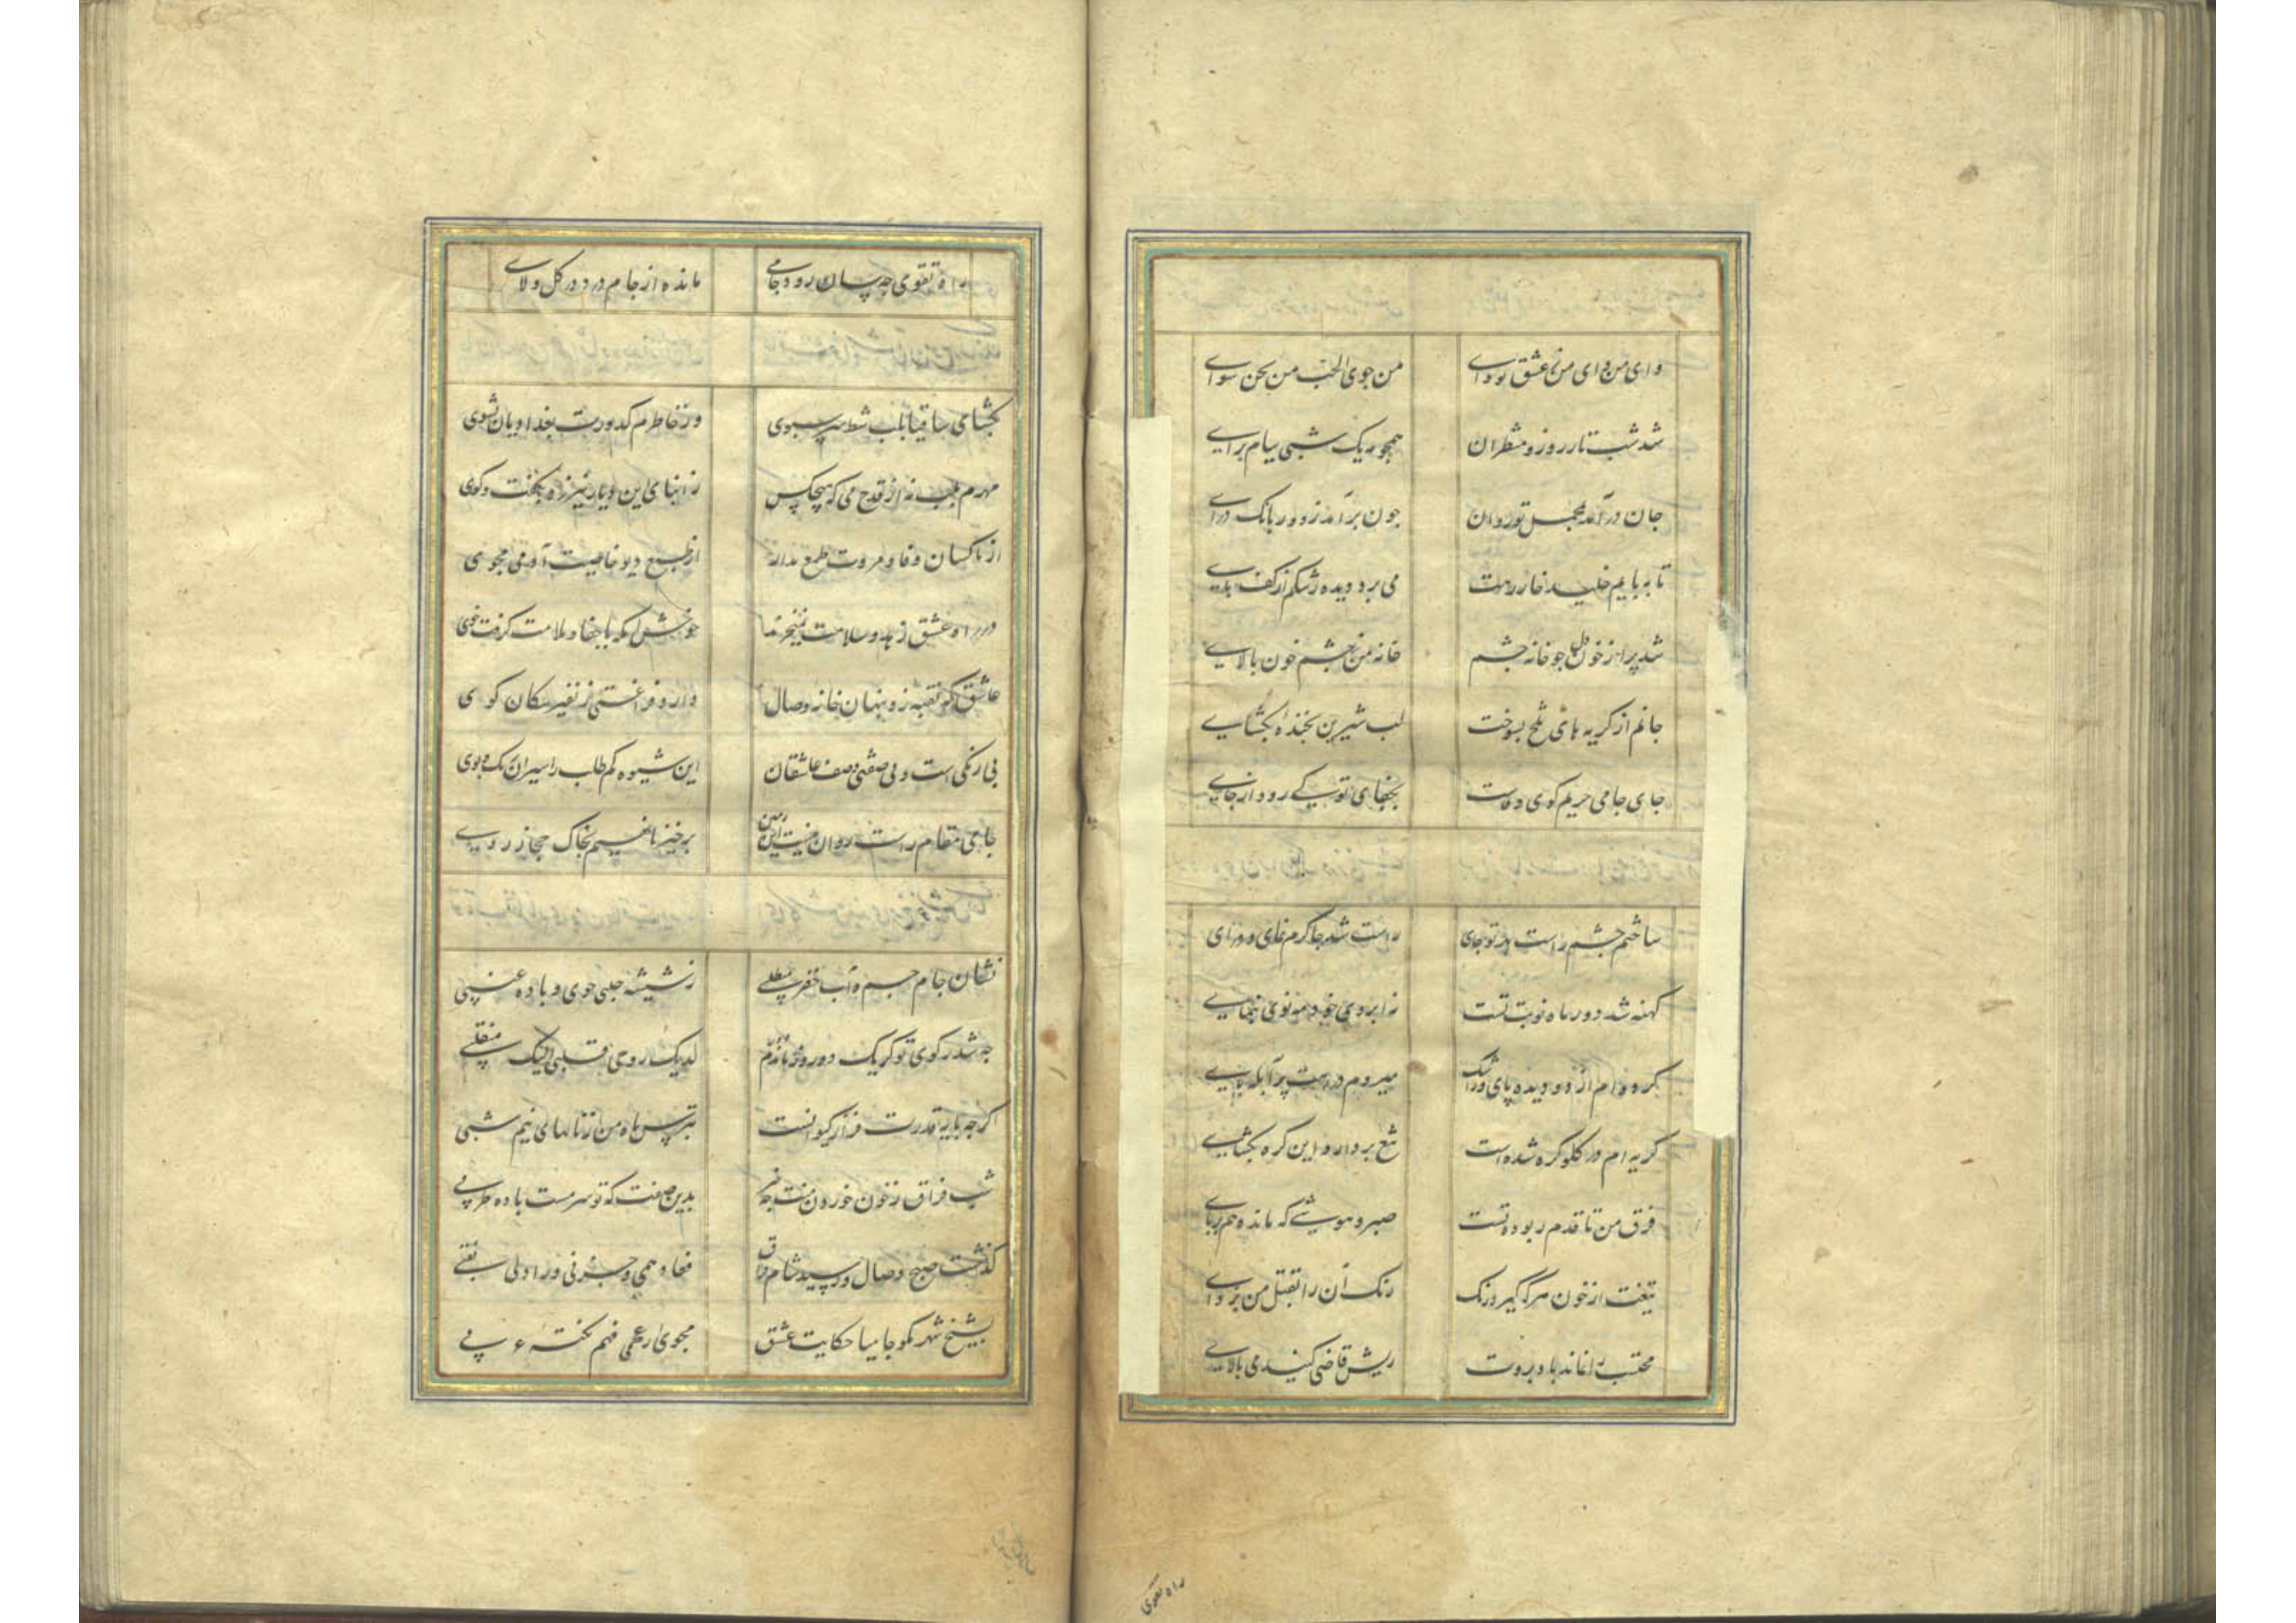 وای من وای من ز عشق تو وای من جوی الحب من بحن سوای
شد شب تار روز و منتظران همچو ریک شبی بیام برای
جان در آمد بمجلس تو روان جون برآمد ز دور بانک درای
تا به پایم خلید خار رهت می برد دیده رشکم از کف پای
شد پر از خون دل جو خانه جشم خانه من بجشم خون پالای
جانم از کریه های تلخ بسوخت لب شیرین بخنده بکشای
جای جامی حریم کوی وفاست بجفای تو کی رود از جای
ساختم جشم راست بهر تو جای راست شد جا کرم نمای و درای
کهنه شد دور ماه نوبت تست ز ابروی خود مه نوی بنمای
کرده ام از دو دیده پای و ز اشک میروم در رهت پر آبله پای
کریه ام در کلو کره شده است تیغ بردار و این کره بکشای
فرق من تا قدم ربوده تست صبر و هوشی که مانده هم بربای
تیغت از خون من مکر کیرد زنک زنک آن را بقتل من بزدای
محتسب را نماند باد بروت ریش قاضی کنید می پالای
راه تقوی
راه تقوی جه سان رود جامی مانده از جام درد در کل و لای
بکشای ساقیا بلب شط سر سبوی وز خاطرم کدورت بغدادیان بشوی
مهرم بلب نه از قدح می که هیچکس ز ابنای این دیار نیرزد بکفت و کوی
از ناکسان وفا و مروت طمع مدار از طبع دیو خاصیت آدمی مجوی
در راه عشق زهد و سلامت نمیخرند خوش آنکه با جفا و ملامت کرفت خوی
عاشق که نقب زد بنهان خانه وصال دارد فراغتی ز نفیر سکان کوی
بی رنکی است و بی صفتی وصف عاشقان این شیوه کم طلب ز اسیران رنک و بوی
جامی مقام راست روان نیست این زمین برخیز تا نهیم بخاک حجاز روی
نشان جام جم و آب خضر می طلبی ز شیشه حلبی جوی و باده عنبی
جه شد ز کوی تو کر یک دو روز ماندم دور لدیک روحی و قلبی الیک منقلبی
اکرجه پایه قدرت فراز کیوانست بترس ماه من از نالهای نیم شبی
شب فراق ز خون خوردن منت جه خبر بدین صفت که تو سرمست باده طربی
کذشت صبح وصال و رسید شام فراق فعاد همی و حزنی و زاد لی نصبی
بشیخ شهر مکو جامیا حکایت عشق مجوی از عجمی فهم نکتهء عربی